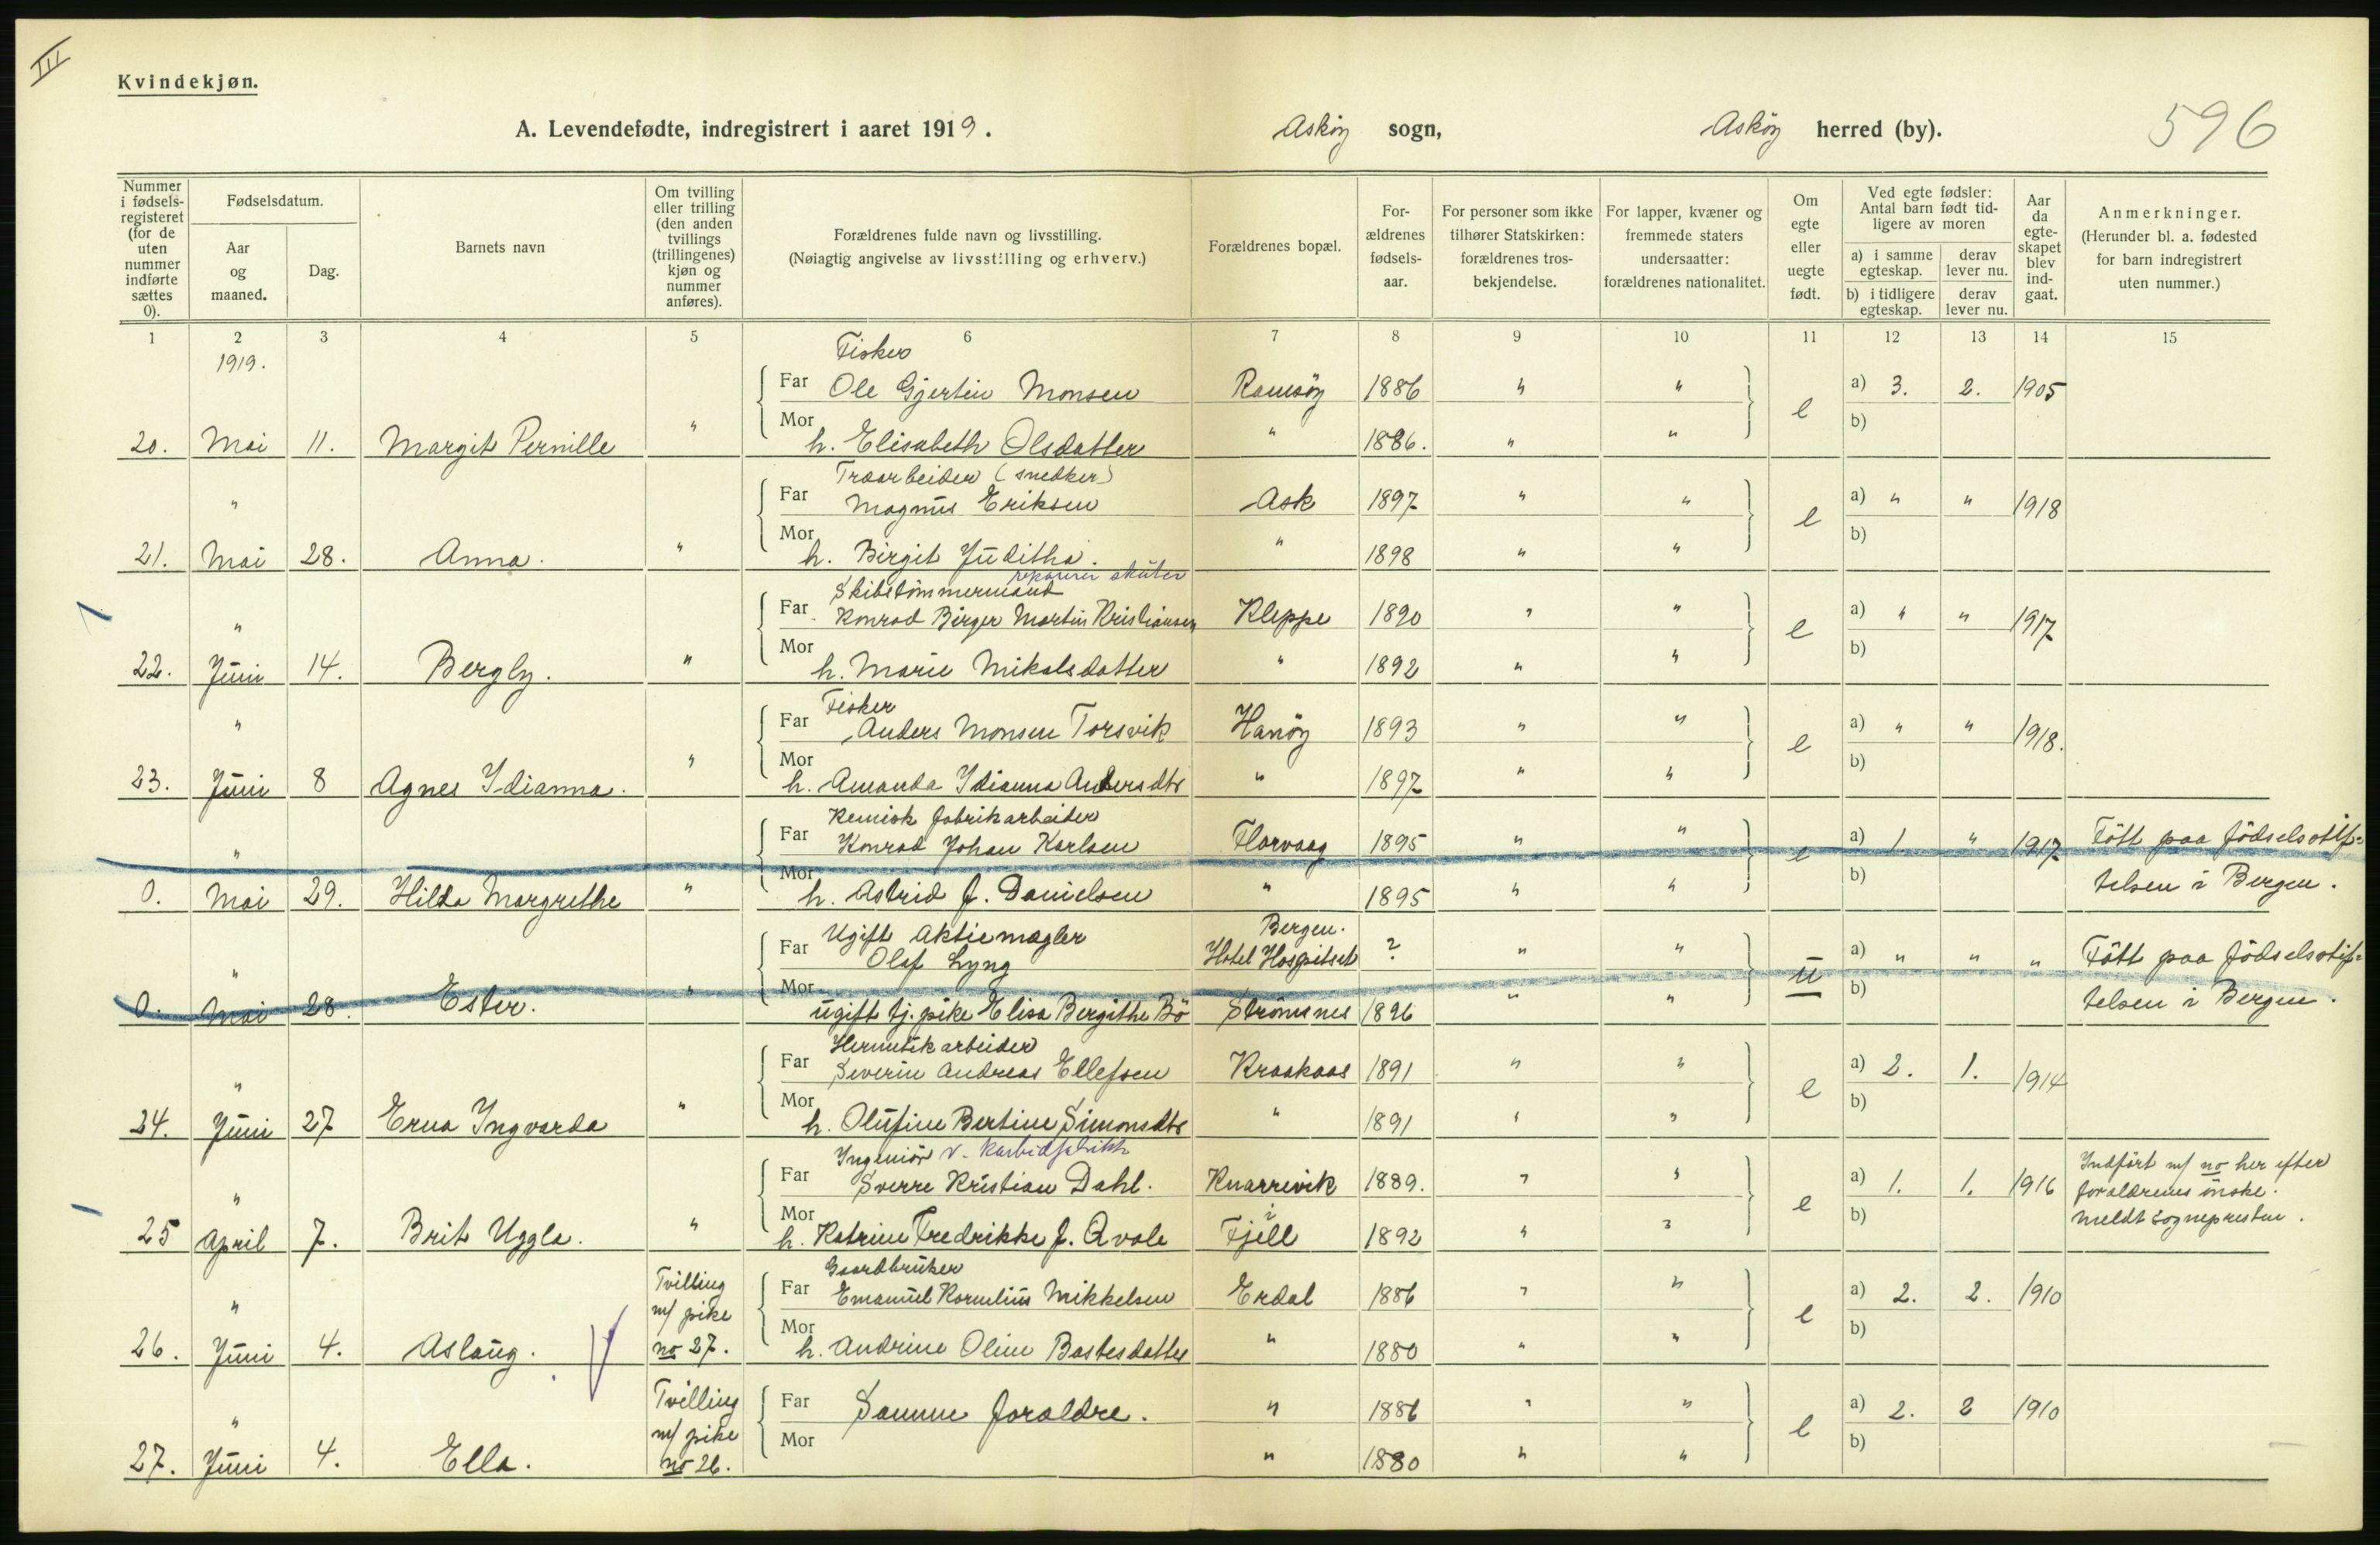 III
Kvindekjøn.
A. Levendefødte, indregistrert i aaret 1919. Askøy sogn, Askøy herred (by). 596
Nummer i fødselsregisteret (for de uten nummer indførte sættes 0).
Fødselsdatum.
Aar og maaned.
Dag.
Barnets navn
Om tvilling eller trilling (den anden tvillings (trillingenes) kjøn og nummer anføres).
Forældrenes fulde navn og livsstilling.
(Nøiagtig angivelse av livsstilling og erhverv.)
Forældrenes bopæl.
Forældrenes fødselsaar.
For personer som ikke tilhører Statskirken: forældrenes trosbekjendelse.
For lapper, kvæner og fremmede staters undersaatter: forældrenes nationalitet.
Om egte eller uegte født.
Ved egte fødsler: Antal barn født tidligere av moren
a) i samme egteskap. derav lever nu.
b) i tidligere egteskap. derav lever nu.
Aar da egteskapet blev indgaat.
Anmerkninger.
(Herunder bl. a. fødested for barn indregistrert uten nummer.)
1 2 3 4 5 6 7 8 9 10 11 12 13 14 15
1919.
Fisker
Far Ole Gjertin Monsen Ramsöy 1886 " " e a) 3. 2. 1905
20. Mai 11. Margit Pernille " Mor h. Elisabeth Olsdatter " 1886. " " b)
Træarbeider (snedker)
" Far Magnus Eriksen Ask 1897 " " e a) " " 1918
21. Mai 28. Anna. " Mor h. Birgit Juditha. " 1898 " " b)
Skibstömmermand reparerer skuter
" Far Konrad Birger Martin Kristiansen Kleppe 1890 " " e a) " " 1917
22. Juni 14. Bergly. " Mor h. Marie Mikalsdatter " 1892 " " b)
Fisker
" Far Anders Monsen Torsvik Hanöy 1893 " " e a) " " 1918.
23. Juni 8 Agnes Idianna. " Mor h. Amanda Idianna Andersdtr " 1897 " " b)
Kemisk fabrikarbeider
" Far Konrad Johan Karlsen Florvaag 1895 " " e a) 1 " 1917 Född paa födselsstif=
0. Mai 29. Hilda Margrethe " Mor h. Astrid f. Danielsen " 1895 " " b) telsen i Bergen.
Ugift Aktiemægler Bergen.
" Far Olaf Lyng Hotel Hospitset ? " " u a) " " " Fött paa födselsstif=
0. Mai 28. Ester. " Mor ugift tj. pike Elisa Bergithe Bö Strömsnes 1896 " " b) telsen i Bergen.
Hermetikarbeider
" Far Severin Andreas Ellefsen Kraakaas 1891 " " e a) 2. 1. 1914
24. Juni 27 Erna Ingvarda " Mor h. Olufine Bertine Simonsdtr " 1891 " " b)
Ingeniör v. Karbidfabrikk
" Far Sverre Kristian Dahl. Knarrevik 1889. " " e a) 1. 1. 1916 Indfört m/ no her efter
forældrenes önske.
25 April 7. Brit Uggla. " Mor h. Katrine Fredrikke f. Qvale i Fjell 1892 " " b) meldt sognepresten.
Gaardbruker
" Tvilling m/ pike no 27. Far Emanuel Kornelius Mikkelsen Erdal 1886 " " e a) 2. 2. 1910
26. Juni 4. Aslaug. Mor h. Andrine Oline Bastesdatter " 1880 " " b)
" Tvilling m/ pike no 26. Far Samme forældre. " 1886 " " e a) 2. 2 1910
27. Juni 4. Ella. Mor " 1880 " " b)